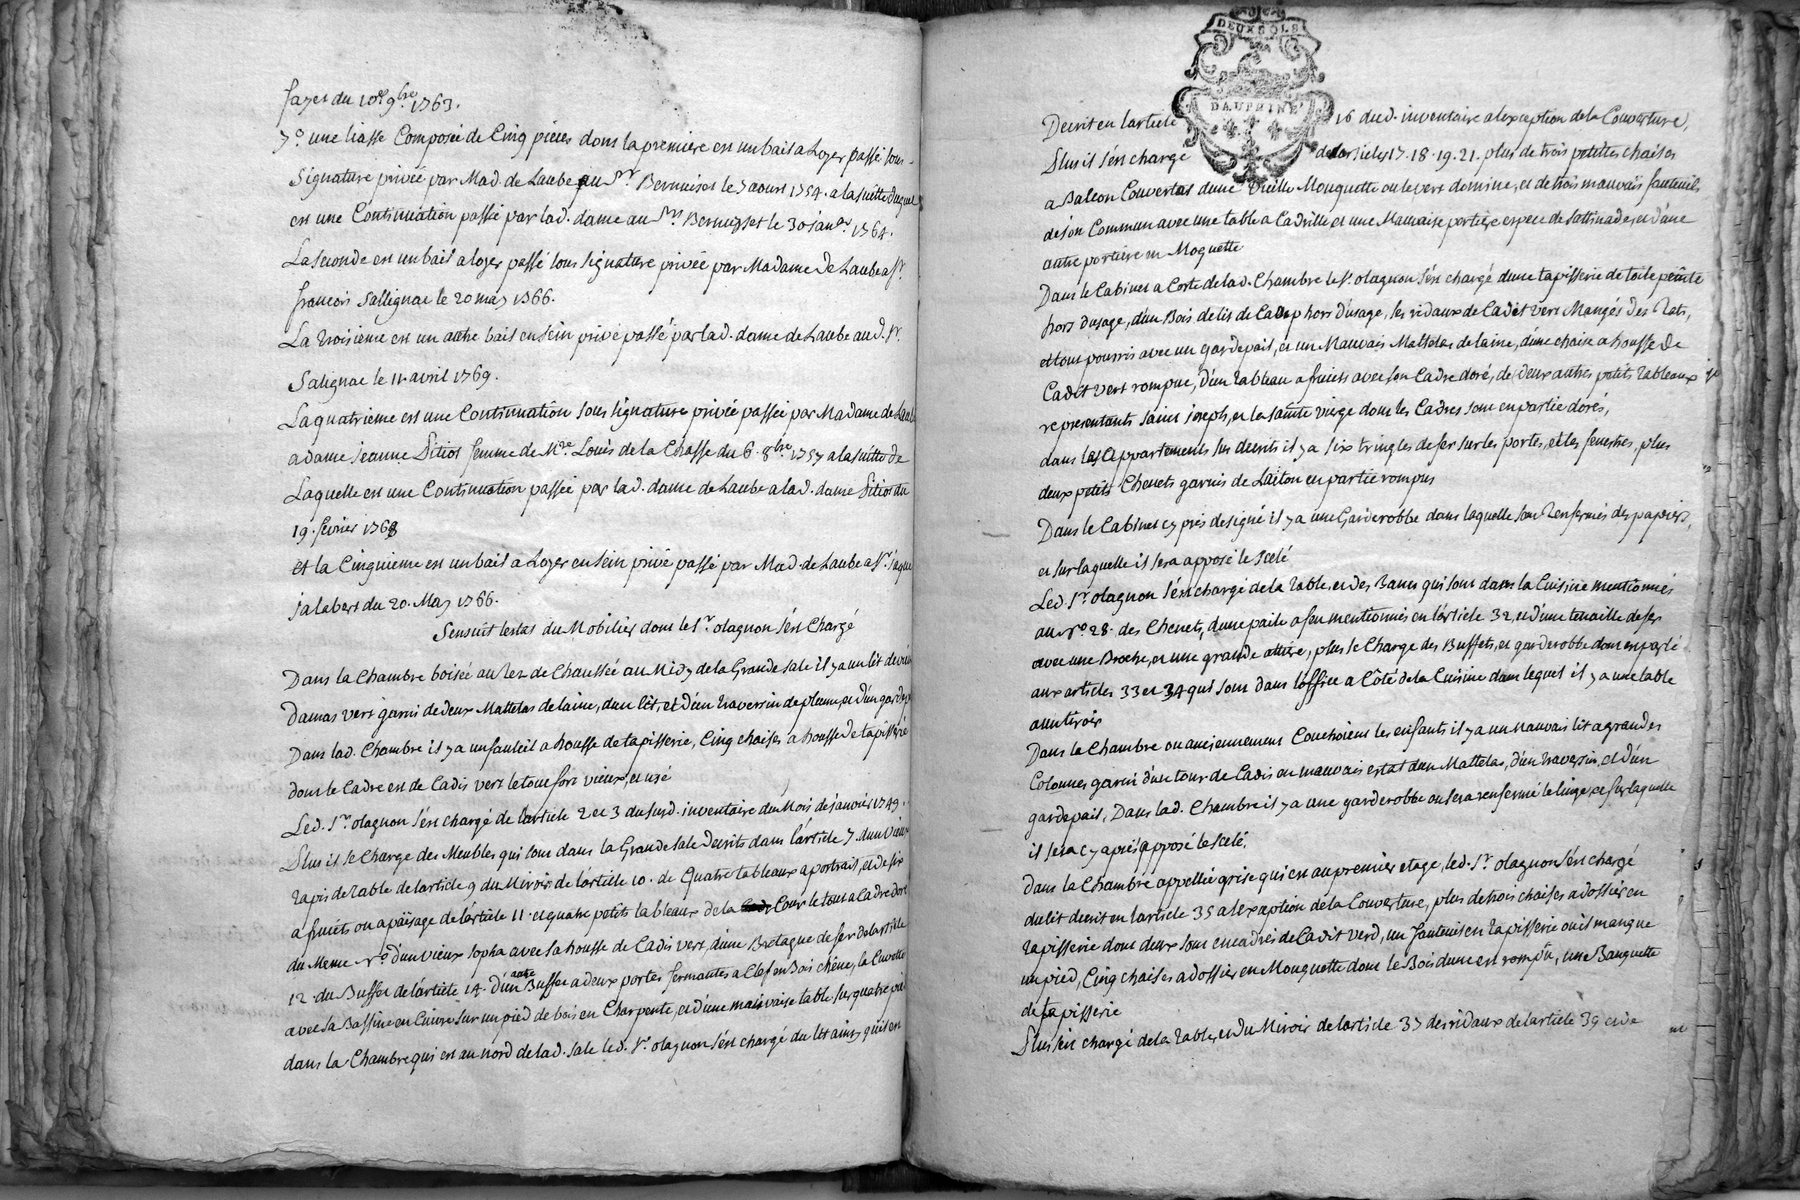 fayes du 10e 9bre 1763.
7o une liasse Composée de Cinq pieces dont la premiere est un bail a Loyer passé sous
signature privée par Mad. de Laube au Sr Bernuiset le 7 aout 1754. a la suitte duquel
est une Continuation passée par lad. dame au Srs Bernuisset le 30 janer 1764.
La seconde est un bail a loyer passé sous signature privée par Madame de Laube a Sr.
françois Sallignac le 20 may 1766.
La troisieme est un autre bail en sein privé passé par lad. dame de Laube aud. Sr.
Salignac le 11. avril 1769.
La quatrieme est une Continuation sous signature privée passée par Madame de Laube
a dame jeanne Sitiot femme de Mre. Louis de la Chasse du 6. 8bre. 1757 a la suitte de
Laquelle est une Continuation passée par lad. dame de Laube a lad. dame Sitiot du
19. fevrier 1768
et la Cinquieme est un bail a Loyer en sein privé passé par Mad. de Laube a Sr. jaque
jalabert du 20. May 1766.
Sensuit lestat du Mobilier dont le Sr. olagnon s'est Chargé
Dans la Chambre boisée au Rez de Chaussée au Midy de la Grande sale il y a un lit de
Damas vert garni de deux Mattelas de laine, dun lit, et d'un traversin de plume, et d'un garde
Dans lad. Chambre il y a un fauteil a housse de tapisserie, Cinq chaises a housse de tapisserie
dont le Cadre est de Cadis vert le tout fort vieux, et usé
Led. Sr. olagnon s'est chargé de l'article 2 et 3 du susd. inventaire du Mois de janvier 1749.
Plus il se Charge des Meubles qui sont dans la Grande sale decrits dans l'article 7. dun vieux
tapis de table de l'article 9 du Miroir de l'article 10. de Quatre tableaux a portrait, et de six
a fruits ou a païsage de l'article 11. et quatre petits tableaux de la Cour le tout a Cadre doré
du Meme No. d'un vieux sopha avec sa housse de Cadis vert, d'une Bretagne de fer de l'article
12. du Buffet de l'article 14. d'un autre Buffet a deux portes fermantes a Clef en Bois chêne, la Cuvette
avec sa Bassine en Cuivre sur un pied de bois en Charpente, et d'une mauvaise table sur quatre
dans la Chambre qui est au nord de lad. sale led. Sr. olagnon s'est chargé du lit ainsy qu'il est
DEUX SOLS
DAUPHINÉ
Decrit en l'article 16 dud. inventaire a l'exception de la Couverture,
Plus il s'est chargé de l'articles 17. 18. 19. 21. plus de trois petites chaises
a Balcon Couvertes d'une Vieille Mouquette ou le vert domine, et de trois mauvais fauteuils
de son Commun avec une table a Cadrille et une Mauvaise portiere espece de sattinade, et d'une
autre portiere en Moquette.
Dans le Cabinet a Coste de lad. Chambre le Sr. olagnon s'est chargé d'une tapisserie de toile peinte
hors d'usage, d'un Bois de lit de Camp hors d'usage, les ridaux de Cadit vert Mangés des Rats,
et tout pourris avec un gardepail, et un Mauvais Mattelas de laine, d'une chaise a housse de
Cadit vert rompue, d'un tableau a fruits avec son Cadre doré, de deux autres petits tableaux
representants saint joseph, et la sainte vierge dont les Cadres sont en partie dorés,
dans les appartements sus decrits il y a six tringles de fer sur les portes, et les fenestres, plus
deux petits Chenets garnis de Laiton en partie rompus
Dans le Cabinet cy près designé il y a une Garderobbe dans laquelle sont Renfermés des papiers,
et sur laquelle il sera apposé le scelé
Led. Sr. olagnon s'est chargé de la table, et des Bancs qui sont dans la Cuisine mentionnés
au No. 28. des Chenets, d'une paile a feu mentionnés en l'article 32, et d'une tenaille de fer
avec une Broche, et une grande , plus se Charge des Buffets, et garderobbe dont est parlé
aux articles 33 et 34 qui sont dans l'office a Côté de la Cuisine dans lequel il y a une table
a un tiroir
Dans la Chambre ou anciennement Couchoient les enfants il y a un mauvais lit a grandes
Colonnes garni d'un tour de Cadis en mauvais estat dun Mattelas, d'un traversin, et d'un
gardepail, Dans lad. Chambre il y a une garderobbe ou sera renfermé le linge et sur laquelle
il sera cy après apposé le scelé.
dans la Chambre appellée grise qui est au premier etage, led. Sr. olagnon s'est chargé
du lit decrit en l'article 35 a l'exception de la Couverture, plus de trois chaises a dossier en
tapisserie dont deux sont encadrés de Cadit verd, un fauteuil en tapisserie ou il manque
un pied, Cinq chaises a dossier en Mouquette dont le Bois d'une est rompû, une Banquette
de tapisserie
Plus s'est chargé de la table, et du Miroir de l'article 37 des ridaux de l'article 39 et de